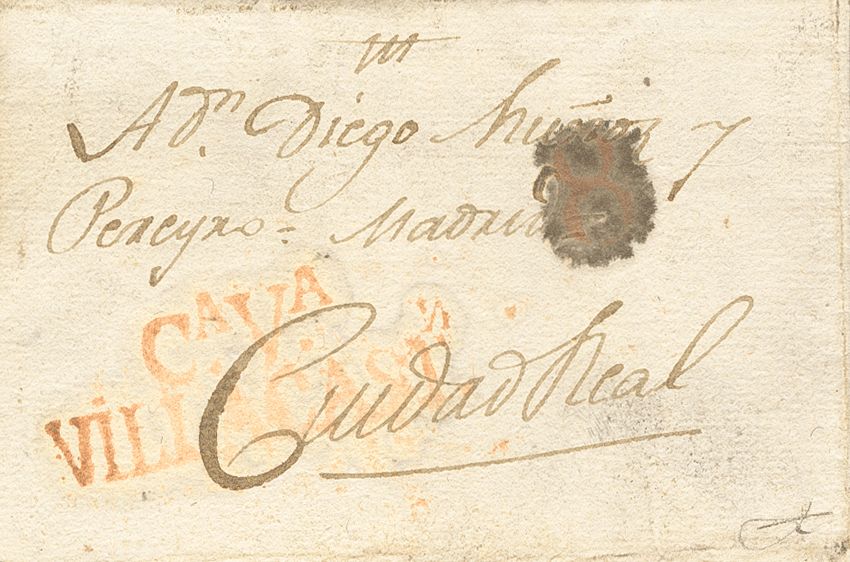 m
A Dn. Diego Muñoz y
Pereyro = Madrid
8
CAVA
VILLA
Ciudad Real